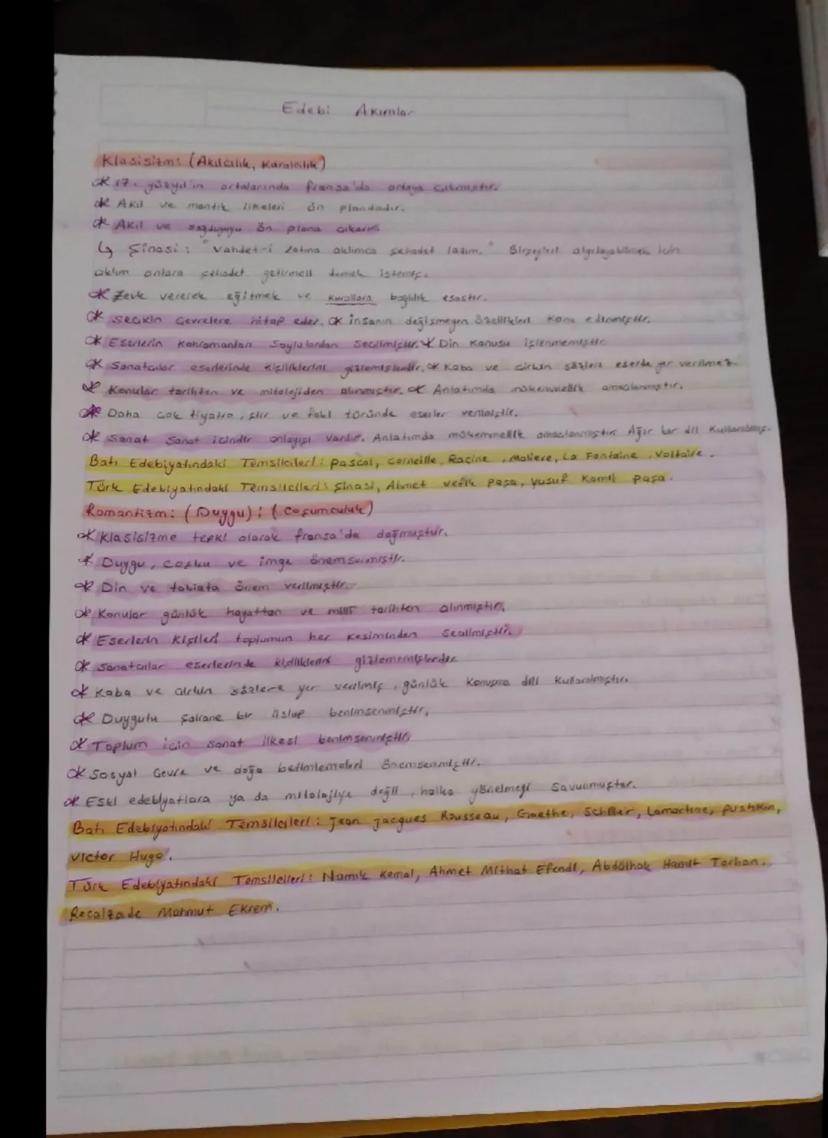 Edebi Akımlar
Klasisizm: (Akılcılık, Kuralcılık)
* 17. yüzyıl'ın ortalarında Fransa'da ortaya çıkmıştır.
* Akıl ve mantık ilkeleri ön plandadır.
* Akıl ve sağduyuyu ön plana çıkarır.
↳ Şinasi: "Vahdet-i zatına aklımca şehadet lazım." Birşeyleri algılayabilmek için
aklım onlara şehadet getirmeli demek istemiş.
* Zevk vererek eğitmek ve kurallara bağlılık esastır.
* Seçkin çevrelere hitap eder. * İnsanın değişmeyen özellikleri konu edinmiştir.
* Eserlerin kahramanları soylulardan seçilmiştir. * Din konusu işlenmemiştir.
* Sanatçılar eserlerinde kişiliklerini gizlemişlerdir. * Kaba ve çirkin sözlere eserde yer verilmez.
* Konular tarihten ve mitolojiden alınmıştır. * Anlatımda mükemmellik amaçlanmıştır.
* Daha çok tiyatro, şiir ve fabl türünde eserler verilmiştir.
* Sanat sanat içindir anlayışı vardır. Anlatımda mükemmellik amaçlanmıştır. Ağır bir dil kullanılmış.
Batı Edebiyatındaki Temsilcileri: Pascal, Corneille, Racine, Moliere, La Fontaine, Voltaire.
Türk Edebiyatındaki Temsilcileri: Şinasi, Ahmet Vefik Paşa, Yusuf Kamil Paşa.
Romantizm: (Duygu): (Coşumculuk)
* Klasisizme tepki olarak Fransa'da doğmuştur.
* Duygu, coşku ve imge önemsenmiştir.
* Din ve tabiata önem verilmiştir.
* Konular günlük hayattan ve milli tarihten alınmıştır.
* Eserlerin kişileri toplumun her kesiminden seçilmiştir.
* Sanatçılar eserlerinde kişiliklerini gizlememişlerdir.
* Kaba ve çirkin sözlere yer verilmiş, günlük konuşma dili kullanılmıştır.
* Duygulu şairane bir üslup benimsenmiştir.
* Toplum için sanat ilkesi benimsenmiştir.
* Sosyal çevre ve doğa betimlemeleri önemsenmiştir.
* Eski edebiyatlara ya da mitolojiye değil, halka yönelmeyi savunmuştur.
Batı Edebiyatındaki Temsilcileri: Jean Jacques Rousseau, Goethe, Schiller, Lamartine, Pushkin,
Victor Hugo.
Türk Edebiyatındaki Temsilcileri: Namık Kemal, Ahmet Mithat Efendi, Abdülhak Hamit Tarhan.
Recaizade Mahmut Ekrem.